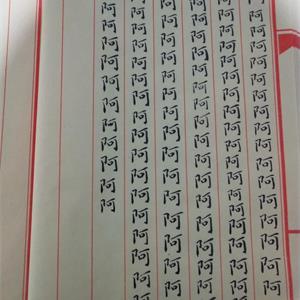 阿阿阿阿阿阿阿阿阿阿阿阿阿阿阿阿
阿阿阿阿阿阿阿阿阿阿阿阿阿阿阿阿阿
阿阿阿阿阿阿阿阿阿阿阿阿阿阿阿阿
阿阿阿阿阿阿阿阿阿阿阿阿阿阿阿
阿阿阿阿阿阿阿阿阿阿阿阿阿阿阿阿
阿阿阿阿阿阿阿阿阿阿阿阿